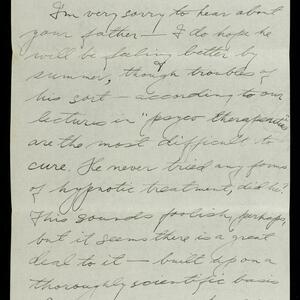 I'm very sorry to hear about
your father — I do hope he
will be feeling better by
summer, though troubles of
his sort — according to our
lectures in "psyco therapeutics"
are the most difficult to
cure. He never tried any forms
of hypnotic treatment, did he?
This sounds foolish, perhaps,
but it seems there is a great
deal to it — built up on a
thoroughly scientific basis